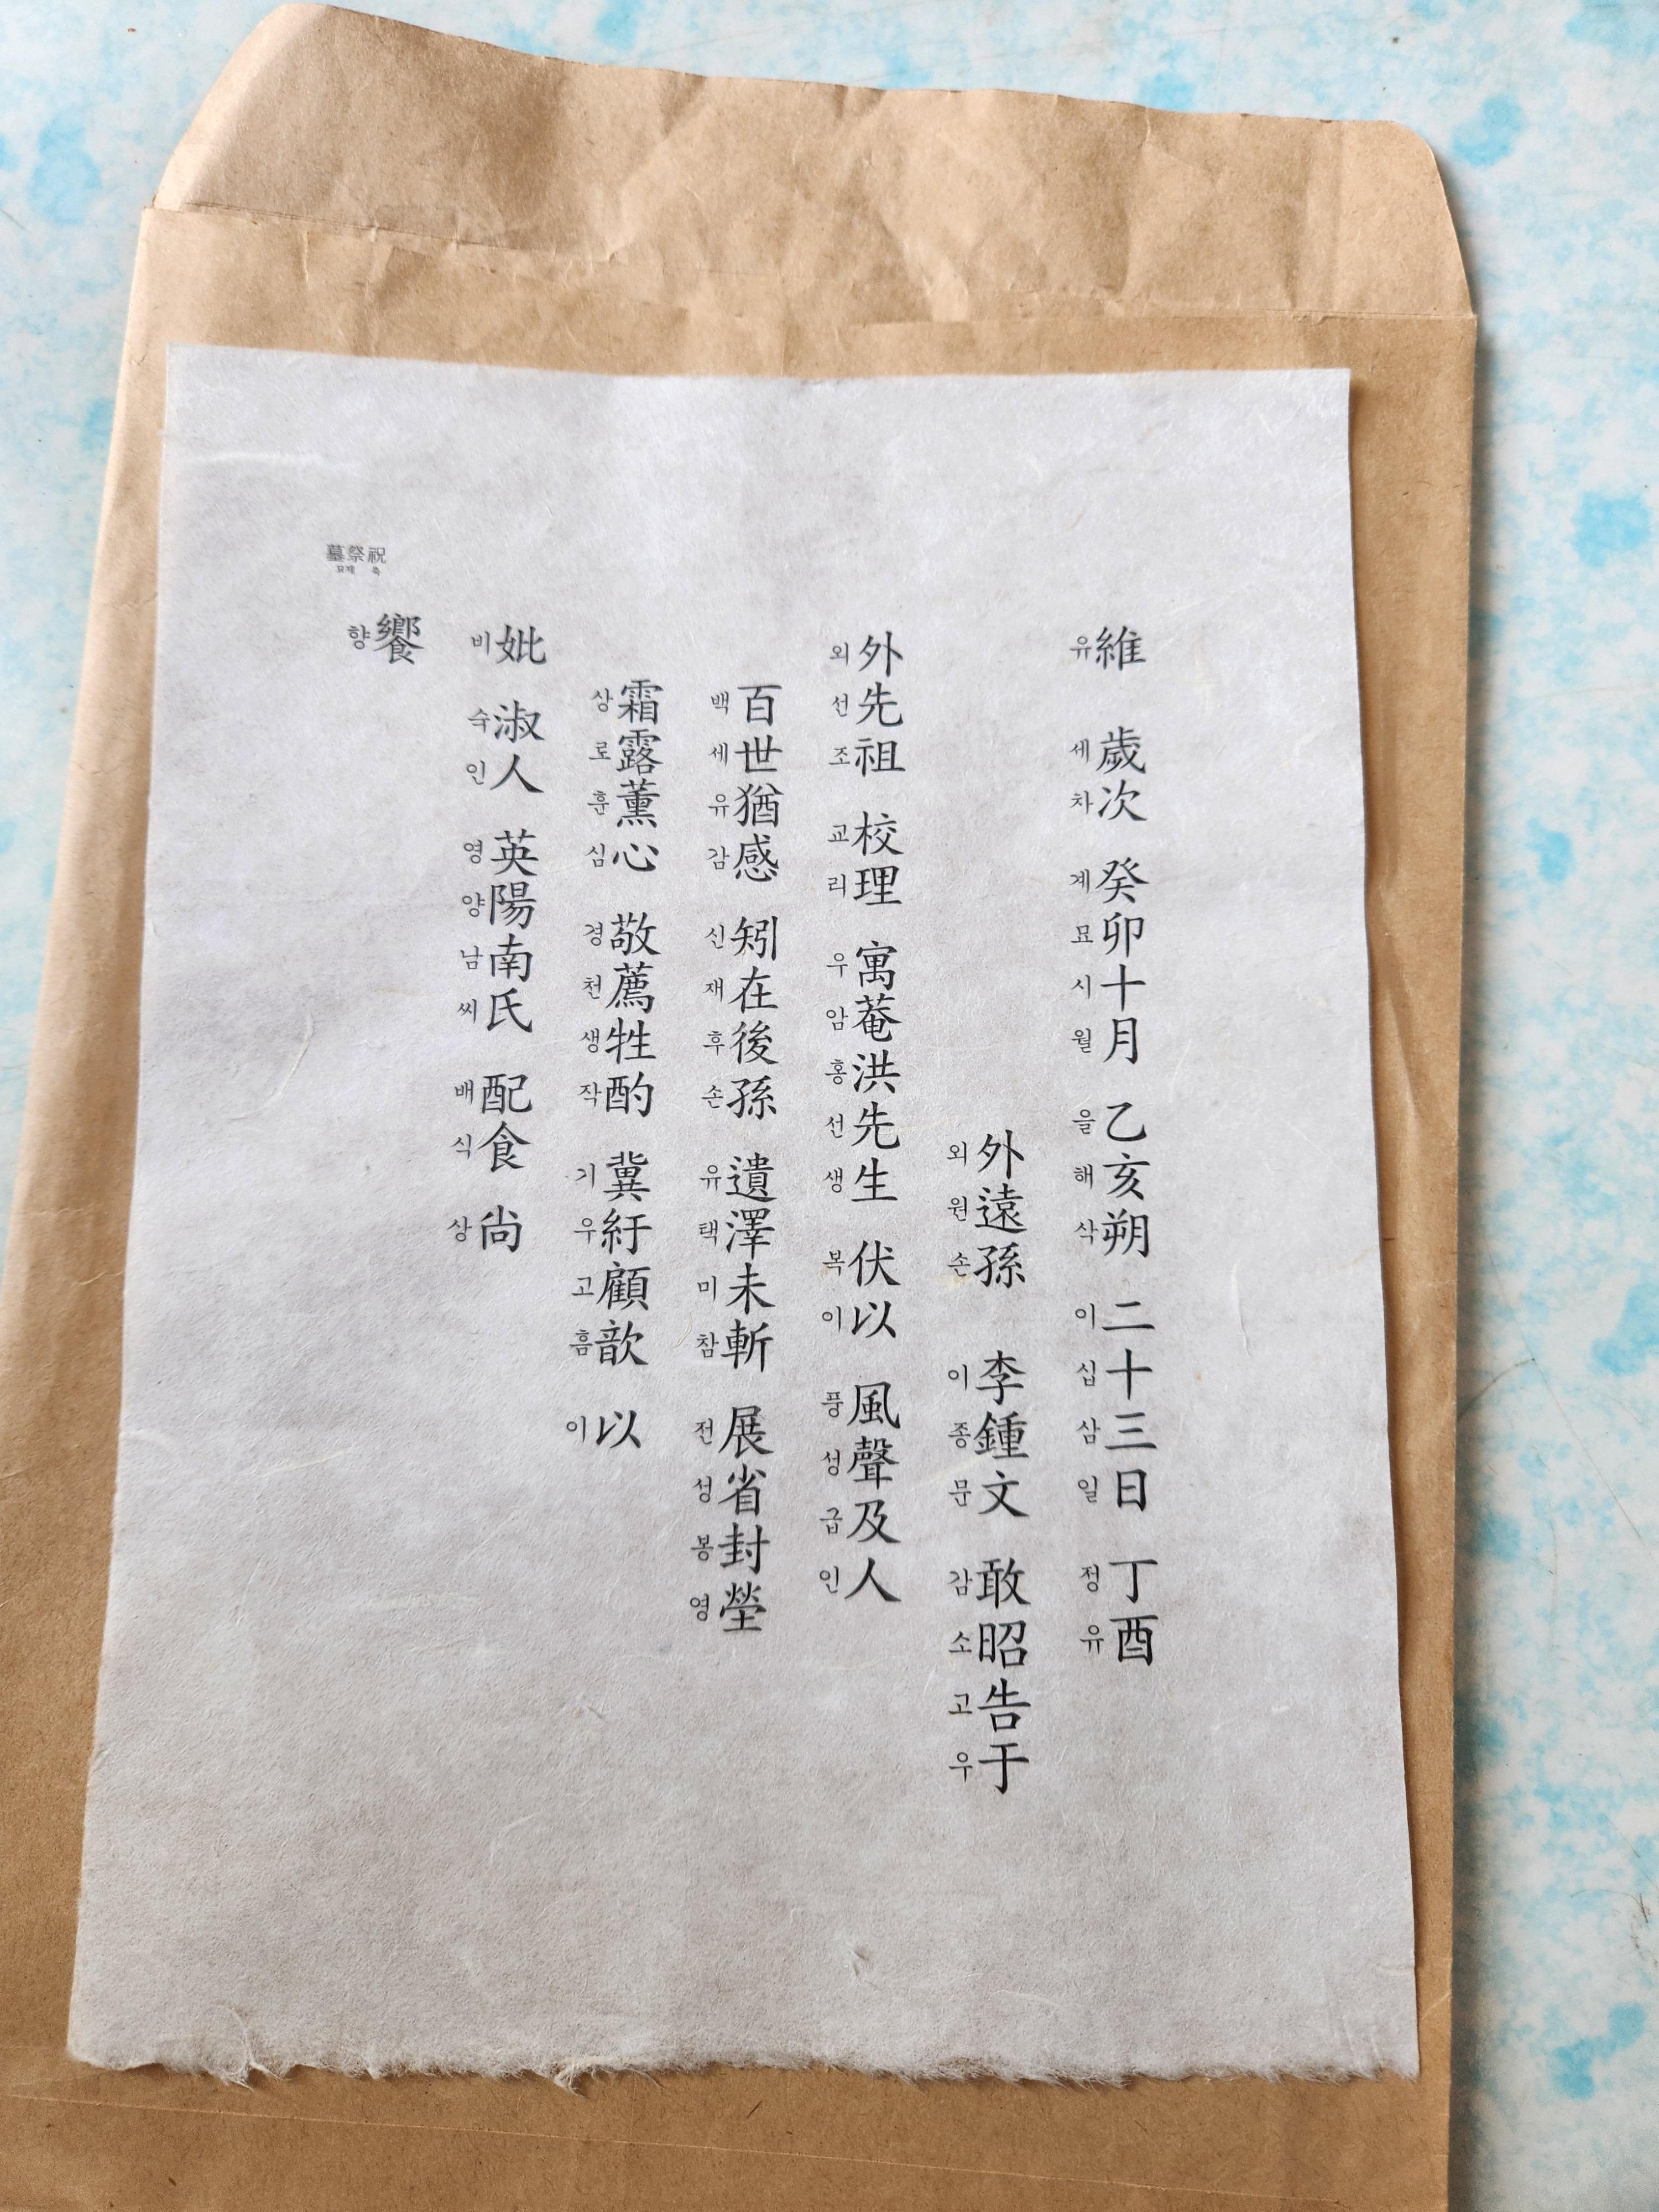 維 歲次 癸卯十月 乙亥朔 二十三日 丁酉
유 세차 계묘시월 을해삭 이십삼일 정유
外遠孫 李鍾文 敢昭告于
외원손 이종문 감소고우
外先祖 校理 寓菴洪先生 伏以 風聲及人
외선조 교리 우암홍선생 복이 풍성급인
百世猶感 矧在後孫 遺澤未斬 展省封塋
백세유감 신재후손 유택미참 전성봉영
霜露薰心 敬薦牲酌 冀紆顧歆 以
상로훈심 경천생작 기우고흠 이
妣 淑人 英陽南氏 配食 尙
비 숙인 영양남씨 배식 상
饗
향
墓祭祝
묘제 축